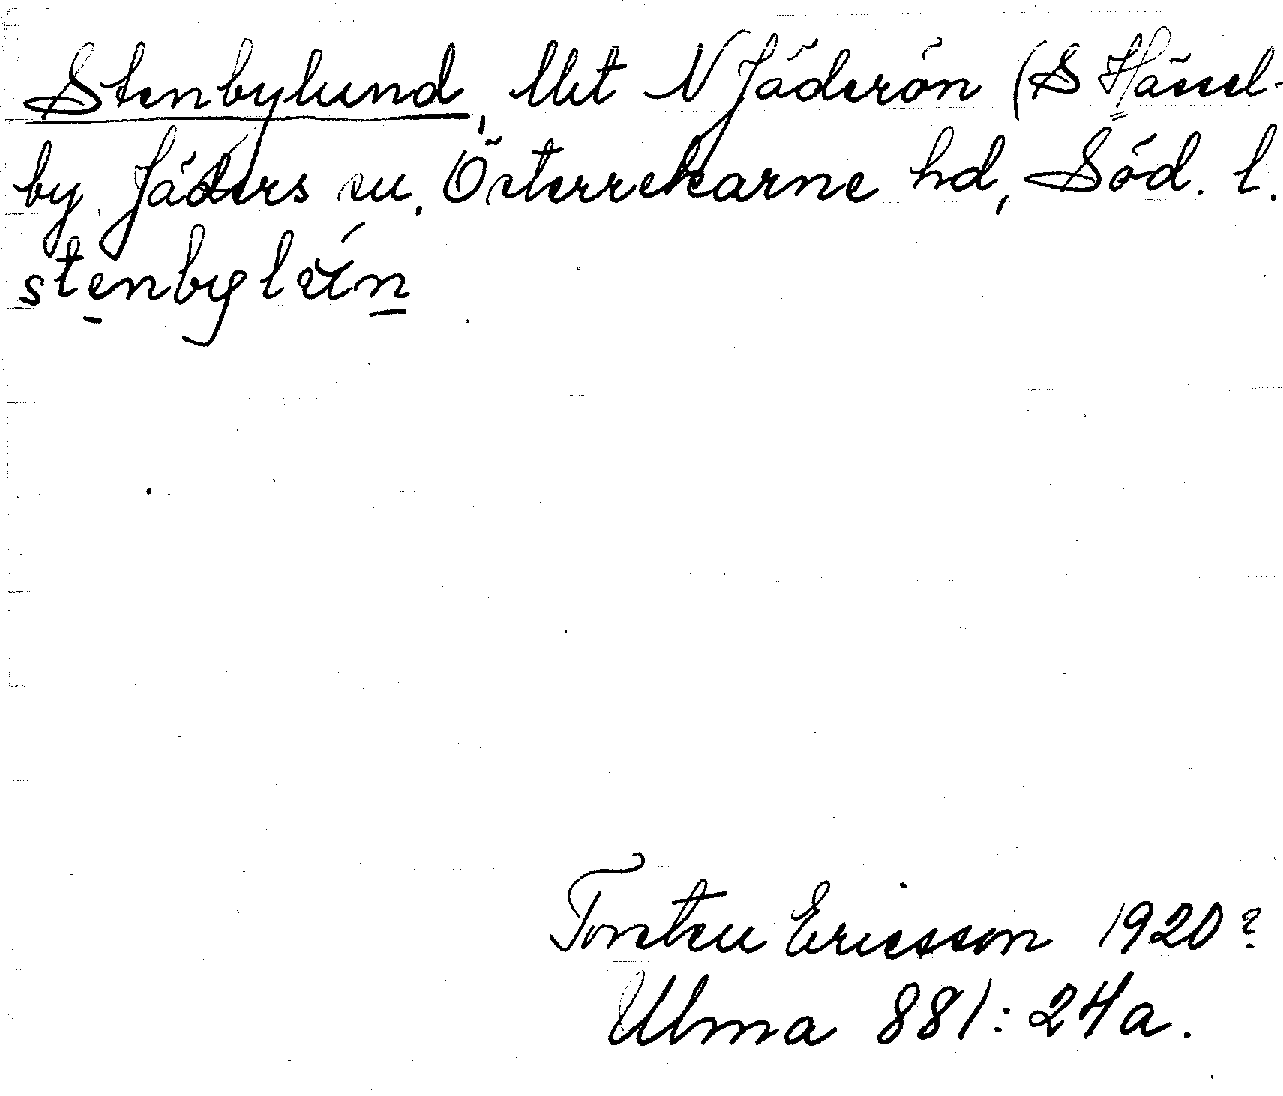 Stenbylund, Ust N Jäderön (S Hässel-
by Jäders sn. Österrekarne hd, Söd. l.
stenbylún
Torsten Ericsson 1920?
Ulma 881:24a.